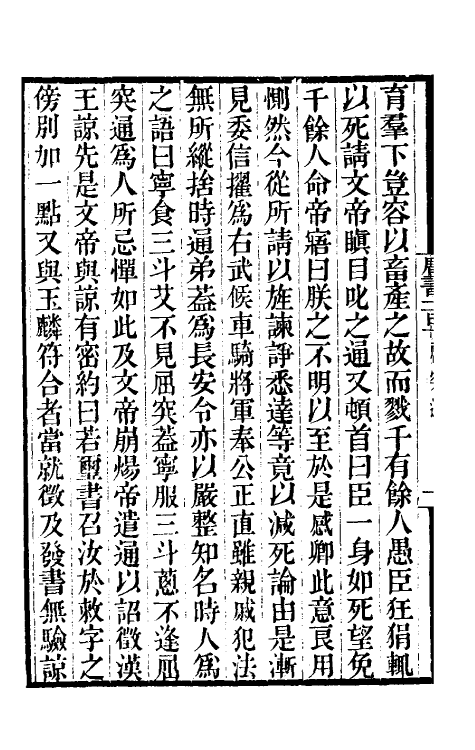 育羣下豈容以畜產之故而戮千有餘人愚臣狂狷輒
以死請文帝瞋目叱之通又頓首曰臣一身如死望免
千餘人命帝寤曰朕之不明以至於是感卿此意良用
惻然今從所請以旌諫諍悉達等竟以減死論由是漸
見委信擢爲右武候車騎將軍奉公正直雖親戚犯法
無所縱捨時通弟葢爲長安令亦以嚴整知名時人爲
之語曰寧食三斗艾不見屈突葢寧服三斗蔥不逢屈
突通爲人所忌憚如此及文帝崩煬帝遣通以詔徵漢
王諒先是文帝與諒有密約曰若璽書召汝於敕字之
傍別加一點又與玉麟符合者當就徵及發書無驗諒